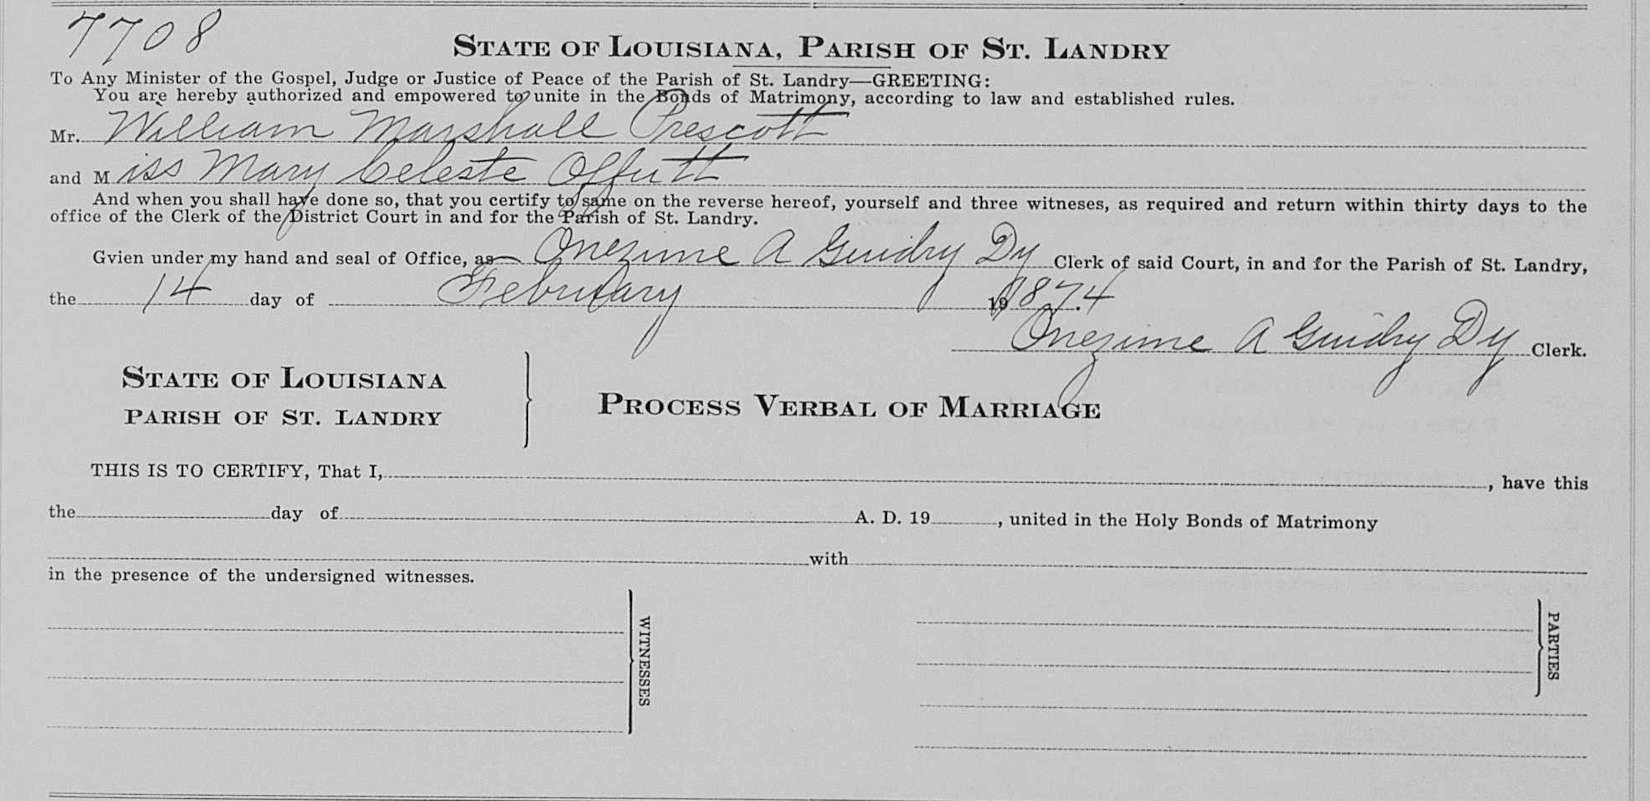 7708
STATE OF LOUISIANA, PARISH OF ST. LANDRY
To Any Minister of the Gospel, Judge or Justice of Peace of the Parish of St. Landry—GREETING:
You are hereby authorized and empowered to unite in the Bonds of Matrimony, according to law and established rules.
Mr. William Marshall Prescott
and Miss Mary Celeste Offutt
And when you shall have done so, that you certify to same on the reverse hereof, yourself and three witneses, as required and return within thirty days to the
office of the Clerk of the District Court in and for the Parish of St. Landry.
Gvien under my hand and seal of Office, as Onezime A Guidry Dy Clerk of said Court, in and for the Parish of St. Landry,
the 14 day of February 19 1874.
Onezime A Guidry Dy Clerk.
STATE OF LOUISIANA
PARISH OF ST. LANDRY
PROCESS VERBAL OF MARRIAGE
THIS IS TO CERTIFY, That I, , have this
the day of A. D. 19 , united in the Holy Bonds of Matrimony
with
in the presence of the undersigned witnesses.
WITNESSES
PARTIES